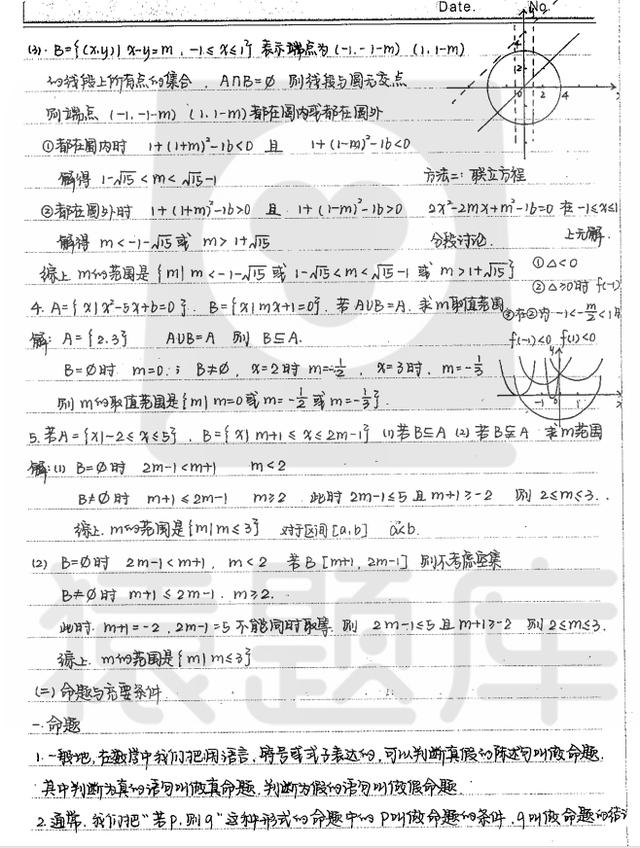 Date.    No
(3). B={(x,y)| x-y=m , -1≤x≤1} 表示端点为 (-1,-1-m) (1,1-m)
的线段上所有点的集合 , A∩B=∅ 则线段与圆无交点
则端点 (-1,-1-m) (1,1-m) 都在圆内或都在圆外
①都在圆内时 1+(1+m)²-16<0 且 1+(1-m)²-16<0
解得 1-√15<m<√15-1
方法二: 联立方程
②都在圆外时 1+(1+m)²-16>0 且 1+(1-m)²-16>0
2x²-2mx+m²-16=0 在 -1≤x≤1
上无解.
解得 m<-1-√15 或 m>1+√15
分段讨论.
综上 m的范围是{m| m<-1-√15 或 1-√15<m<√15-1 或 m>1+√15}
①△<0
②△>0时 f(-1)
4. A={x|x²-5x+6=0}. B={x|mx+1=0}. 若A∪B=A. 求m取值范围
③在②内 -1<-m/2<1时
f(-1)<0 f(1)<0
解: A={2,3} A∪B=A 则 B⊆A.
B=∅时 m=0.; B≠∅, x=2时 m=-1/2 , x=3时, m=-1/3
则 m的取值范围是{m| m=0或m=-1/2或m=-1/3}.
5. 若A={x|-2≤x≤5} , B={x| m+1≤x≤2m-1} (1)若B⊆A (2) 若B⫋A 求m范围
解: (1) B=∅时 2m-1<m+1 m<2
B≠∅时 m+1≤2m-1 m≥2 此时 2m-1≤5且m+1≥-2 则 2≤m≤3.
综上. m的范围是{m|m≤3} 对于区间[a,b] a<b.
(2) B=∅时 2m-1<m+1, m<2 若B [m+1, 2m-1] 则不考虑空集
B≠∅时 m+1≤2m-1. m≥2.
此时. m+1=-2 , 2m-1=5 不能同时取等. 则 2m-1≤5且m+1≥-2 则 2≤m≤3.
综上. m的范围是{m|m≤3}
(二) 命题与充要条件
一. 命题
1. 一般地, 在数学中我们把用语言、符号或式子表达的, 可以判断真假的陈述句叫做命题.
其中判断为真的语句叫做真命题. 判断为假的语句叫做假命题.
2. 通常. 我们把“若p. 则q”这种形式的命题中的P叫做命题的条件. q叫做命题的结
猿题库